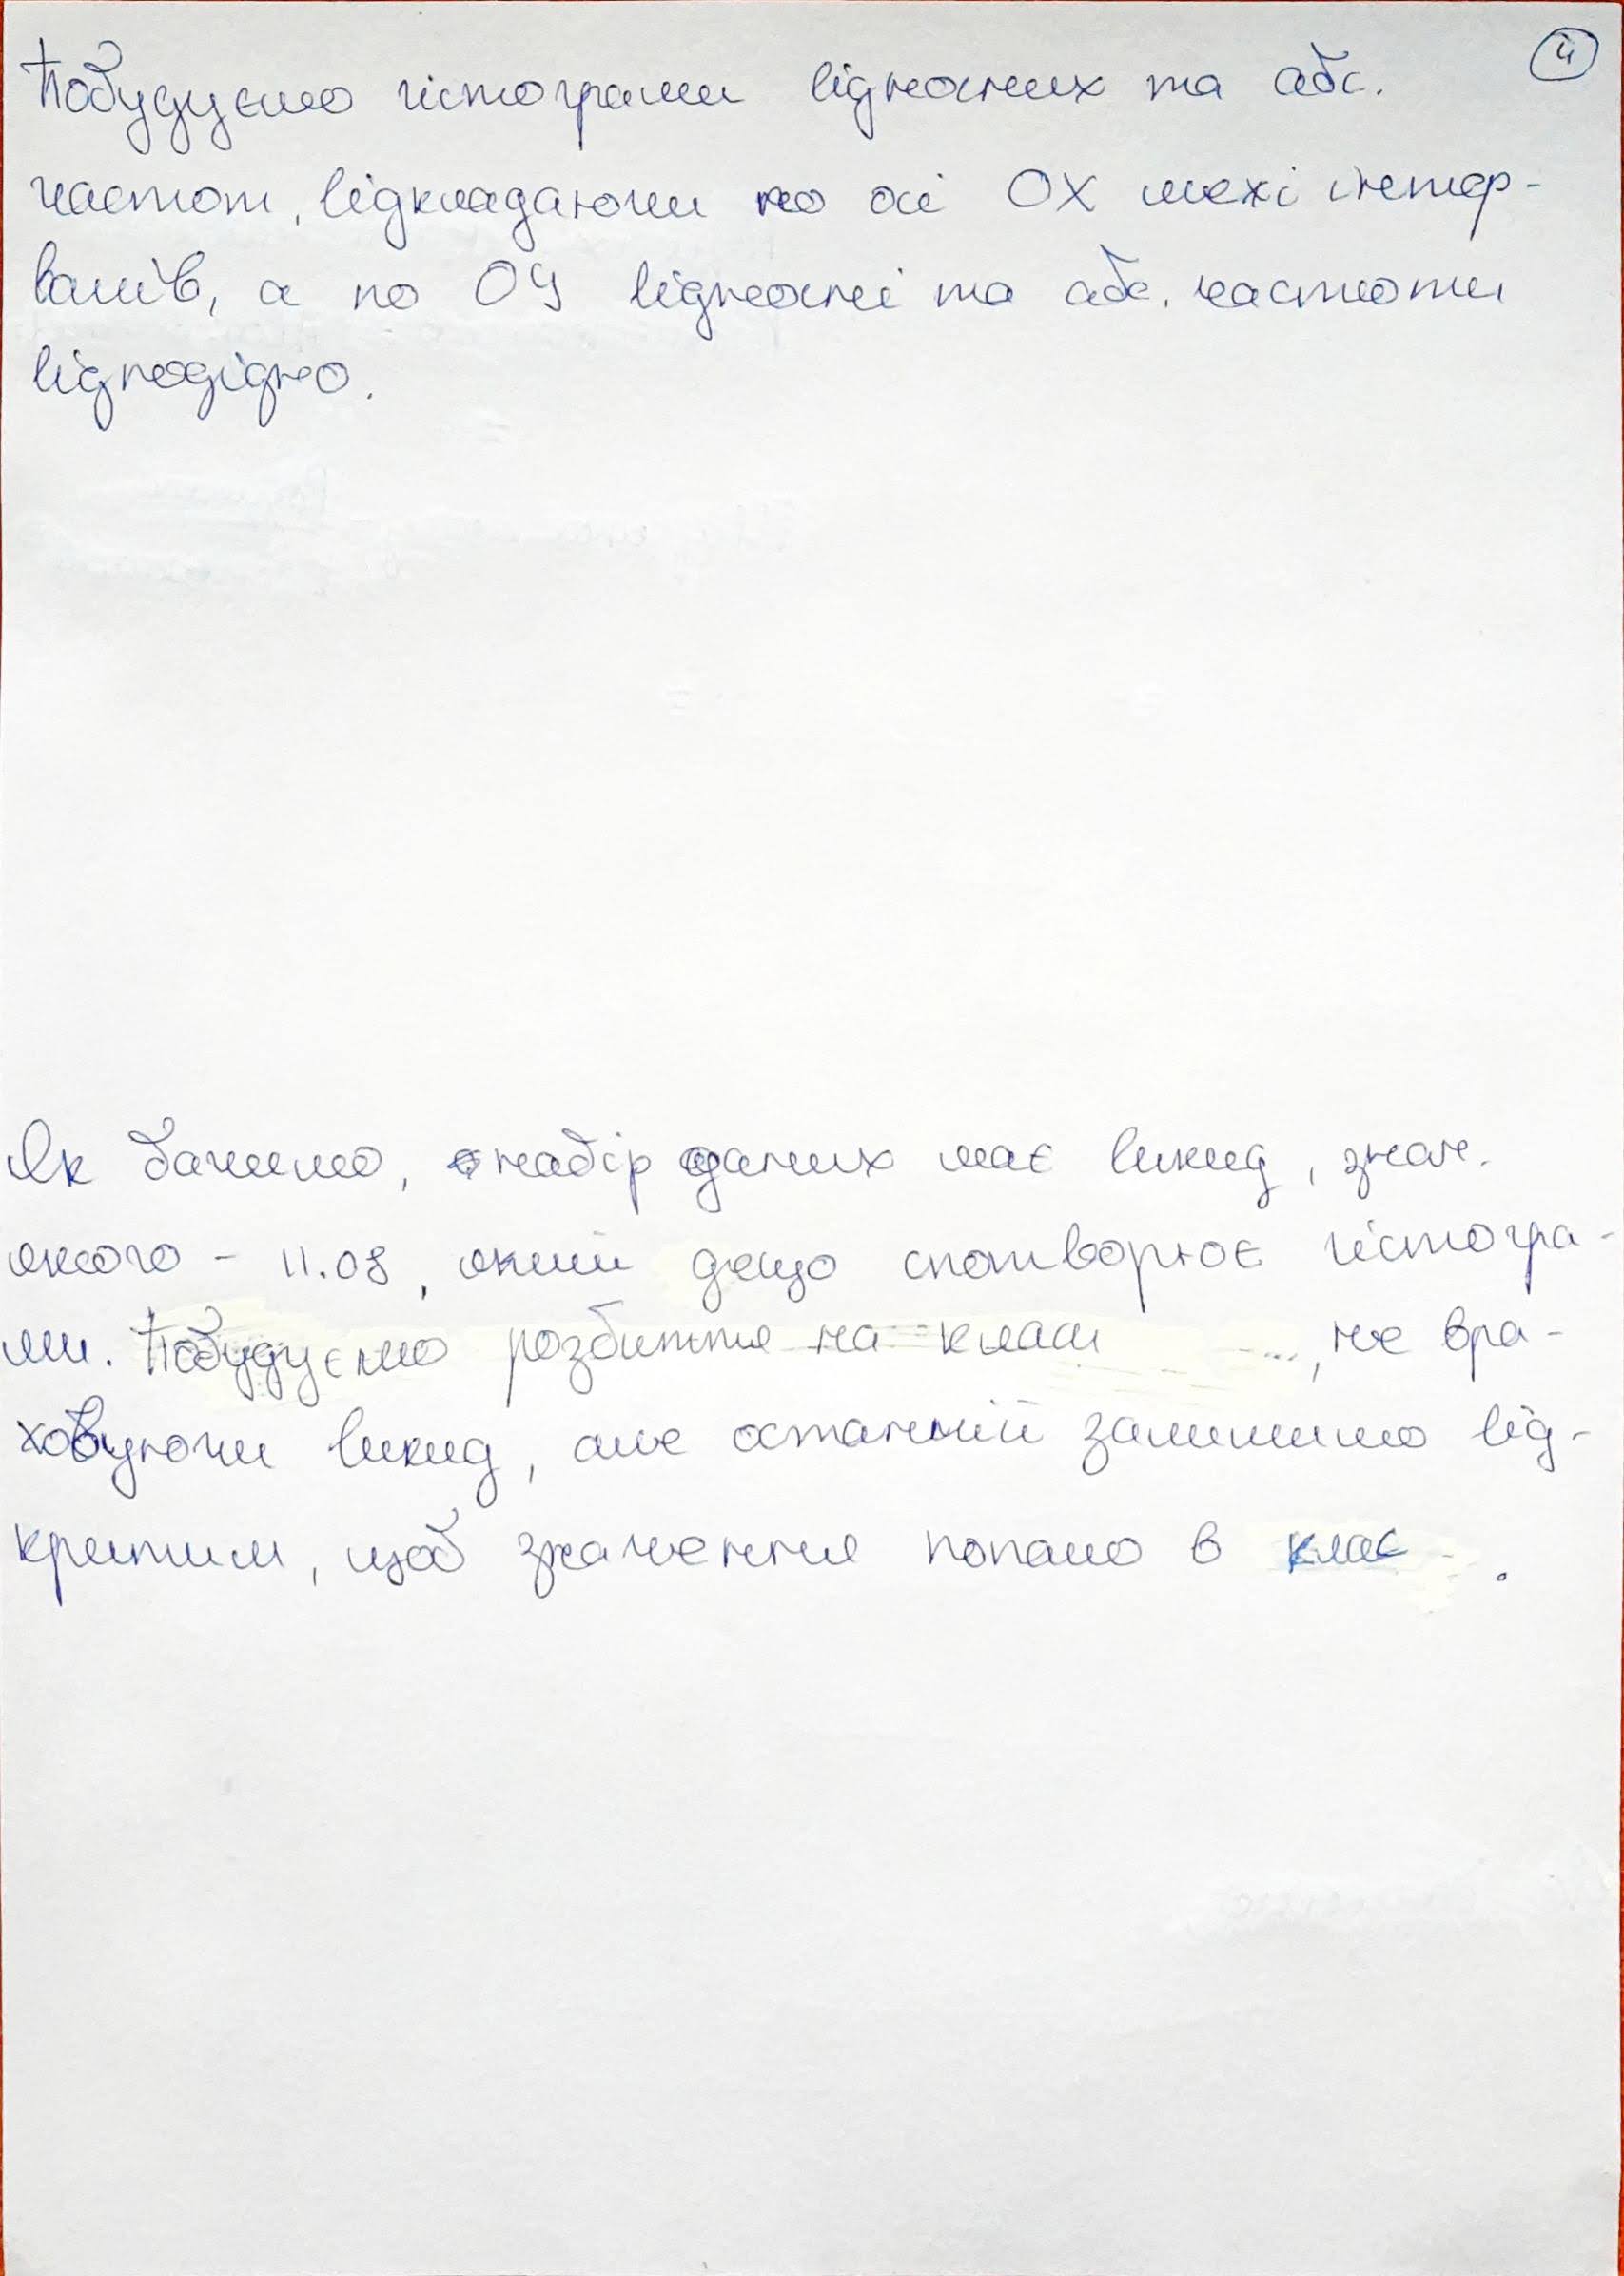 4
Побудуємо гістограми відносних та абс.
частот, відкладаючи по осі OX межі інтер-
валів, а по OY відносні та абс. частоти
відповідно.
Як бачимо, набір даних має викид, знач.
якого - 11.08, який дещо спотворює гістогра-
ми. Побудуємо розбиття на класи ..., не вра-
ховуючи викид, але останній залишимо від-
критим, щоб значення попало в клас .